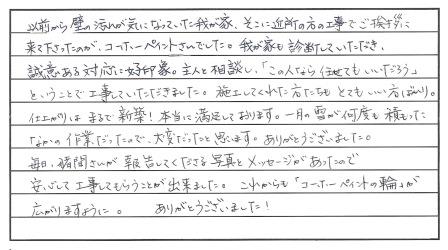 以前から壁の汚れが気になっていた我が家、そこに近所の方の工事でご挨拶に
来て下さったのが、コーナーペイントさんでした。我が家も診断していただき、
誠意ある対応に好印象。主人と相談し、「この人なら任せてもいいだろう」
ということで工事していただきました。施工してくれた方たちも とてもいい方ばかり。
仕上がりは まるで新築！本当に満足しております。一月の雪が何度も積もった
なかの作業だったので、大変だったと思います。ありがとうございました。
毎日、猪間さんが 報告してくださる写真とメッセージがあったので
安心して工事してもらうことが出来ました。これからも「コーナーペイントの輪」が
広がりますように。 ありがとうございました！